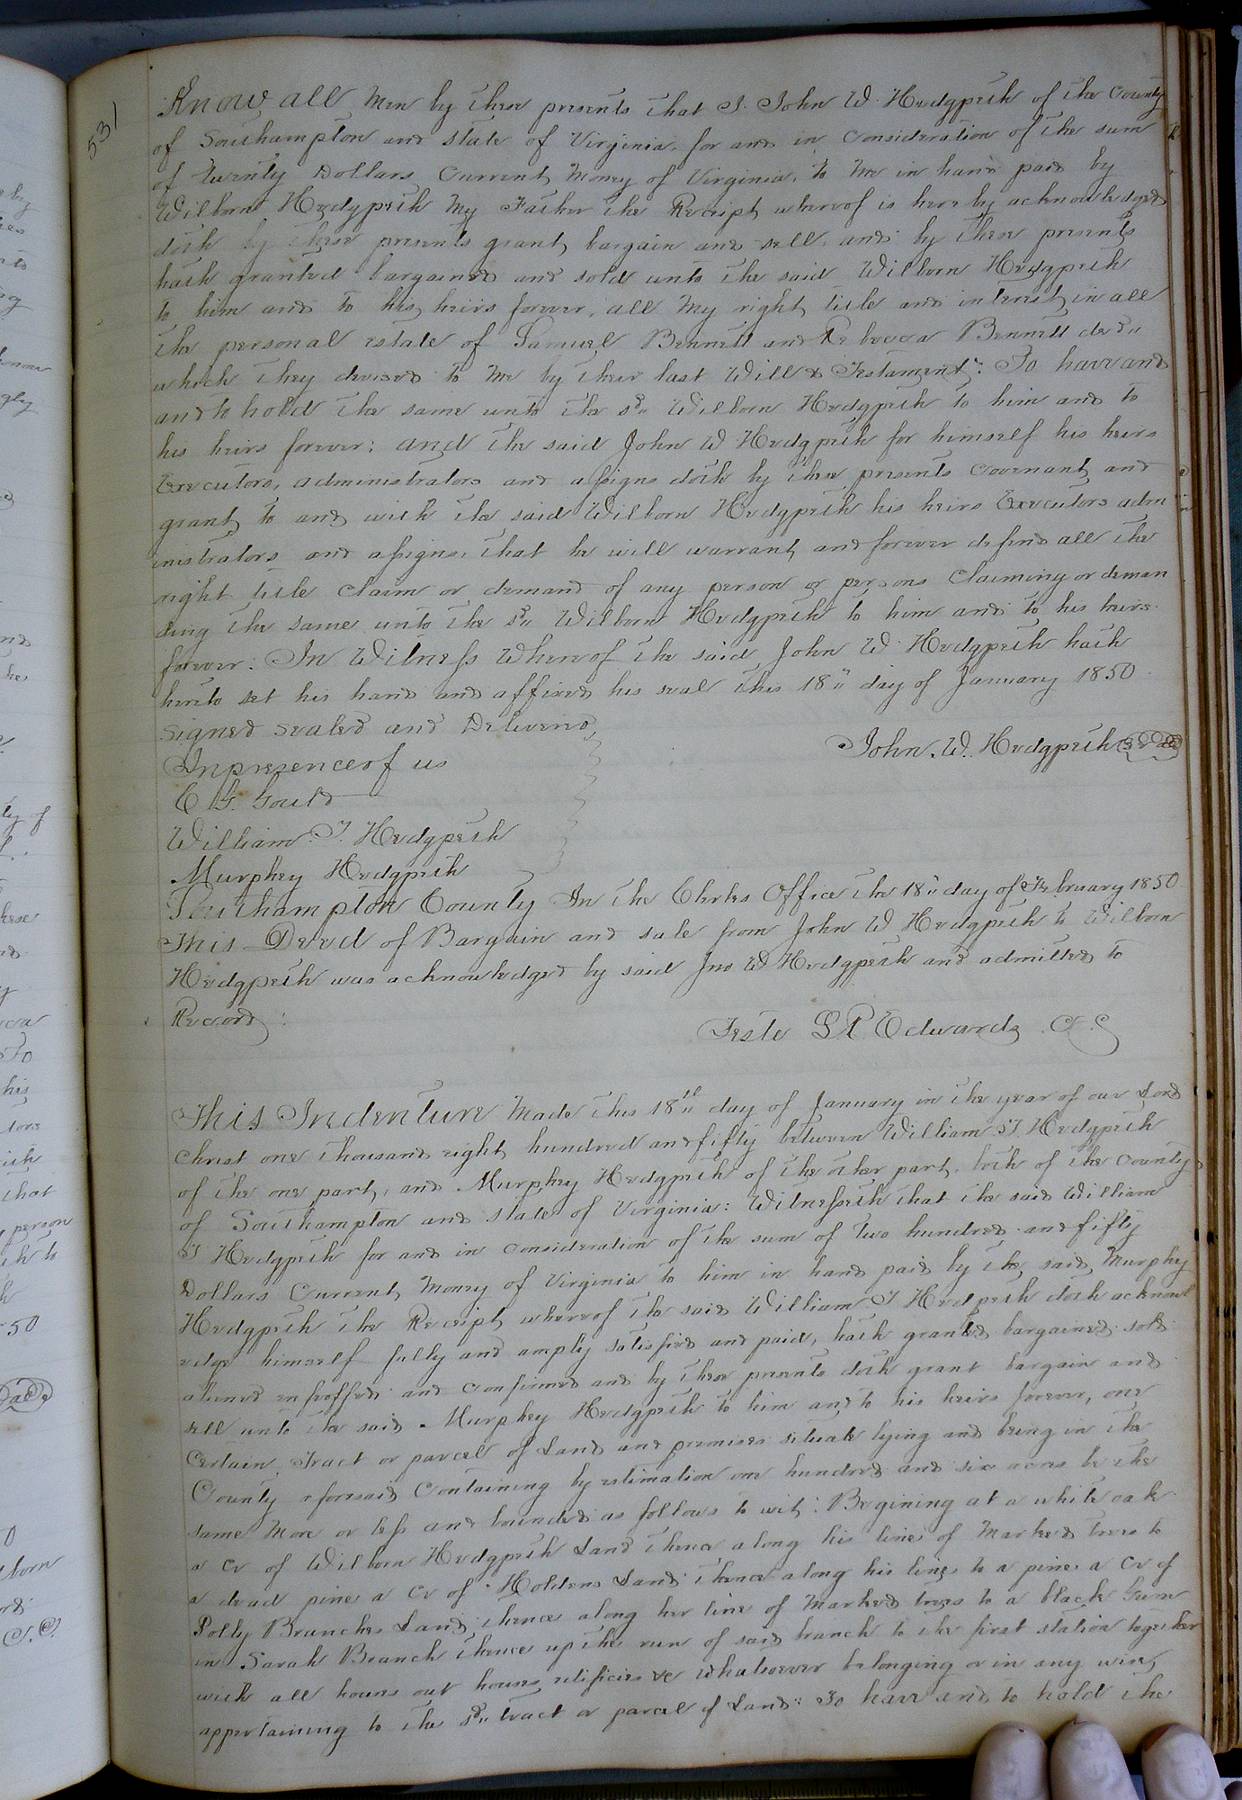 531
Know all Men by these presents that I John W. Hedgpeth of the County
of Southampton and state of Virginia, for and in consideration of the sum
of twenty Dollars Current Money of Virginia, to me in hand paid by
Wilborn Hedgpeth My Father the Receipt whereof is here by acknowledged
doth by these presents grant, bargain and sell, and by these presents
hath granted bargained and sold unto the said Wilborn Hedgpeth
to him and to his heirs forever, all My right title and interest, in all
the personal estate of Samuel Bennett and Rebecca Bennett decd"
which they devised to me by their last Will & Testament: To have and
and to hold the same unto the sd" Wilborn Hedgpeth to him and to
his heirs forever: and the said John W Hedgpeth for himself his heirs
Executors, administrators and assigns doth by these presents Covenant and
grant, to and with the said Wilborn Hedgpeth his heirs Executors adm
inistrators and assigns, that he will warrant, and forever defend all the
right title claim or demand of any person or persons claiming or deman
ding the same unto the sd" Wilborn Hedgpeth to him and to his heirs
forever: In Witness Whereof the said John W. Hedgpeth hath
hereto set his hand and affixed his seal this 18" day of January 1850
Signed sealed and Delivered,
In presence of us
John. W. Hedgpeth Seal
C G. Gould
William. T. Hedgpeth
Murphey Hedgpeth
Southampton County In the Clerks Office the 18" day of February 1850
This Deed of Bargain and sale from John W Hedgpeth to Wilborn
Hedgpeth was acknowledged by said Jno W Hedgpeth and admitted to
Record:
Teste L R Edwards C. C
This Indenture Made this 18th" day of January in the year of our Lord
Christ one thousand eight hundred and fifty between William T. Hedgpeth
of the one part, and Murphey Hedgpeth of the other part, both of the County
of Southampton and state of Virginia: Witnesseth that the said William
T Hedgpeth for and in consideration of the sum of two hundred and fifty
Dollars Current, Money of Virginia to him in hand paid by the said, Murphey
Hedgpeth the Receipt whereof the said William T Hedgpeth doth acknowl
edge himself fully and amply satisfied and paid, hath granted bargained sold
aliened enfoffed and confirmed and by these presents doth grant bargain and
sell unto the said Murphey Hedgpeth to him and to his heirs forever, one
Certain, Tract or parcel of Land and premises situate lying and being in the
County aforesaid Containing by estimation one hundred and six acres be the
same More or less and bounded as follows to wit: Begining at a white oak
a Cr of Wilborn Hedgpeth Land thence along his line of Marked trees to
a dead pine a Cr of Holdens Land thence along his line to a pine a Cr of
Polly Branches Land, thence along her line of Marked trees to a black Gum
in Sarah Branch thence up the run of said branch to the first station together
with all houses out houses, edificies &c Whatsoever belonging or in any wise,
appertaining to the sd" tract or parcel of Land: To have and to hold the